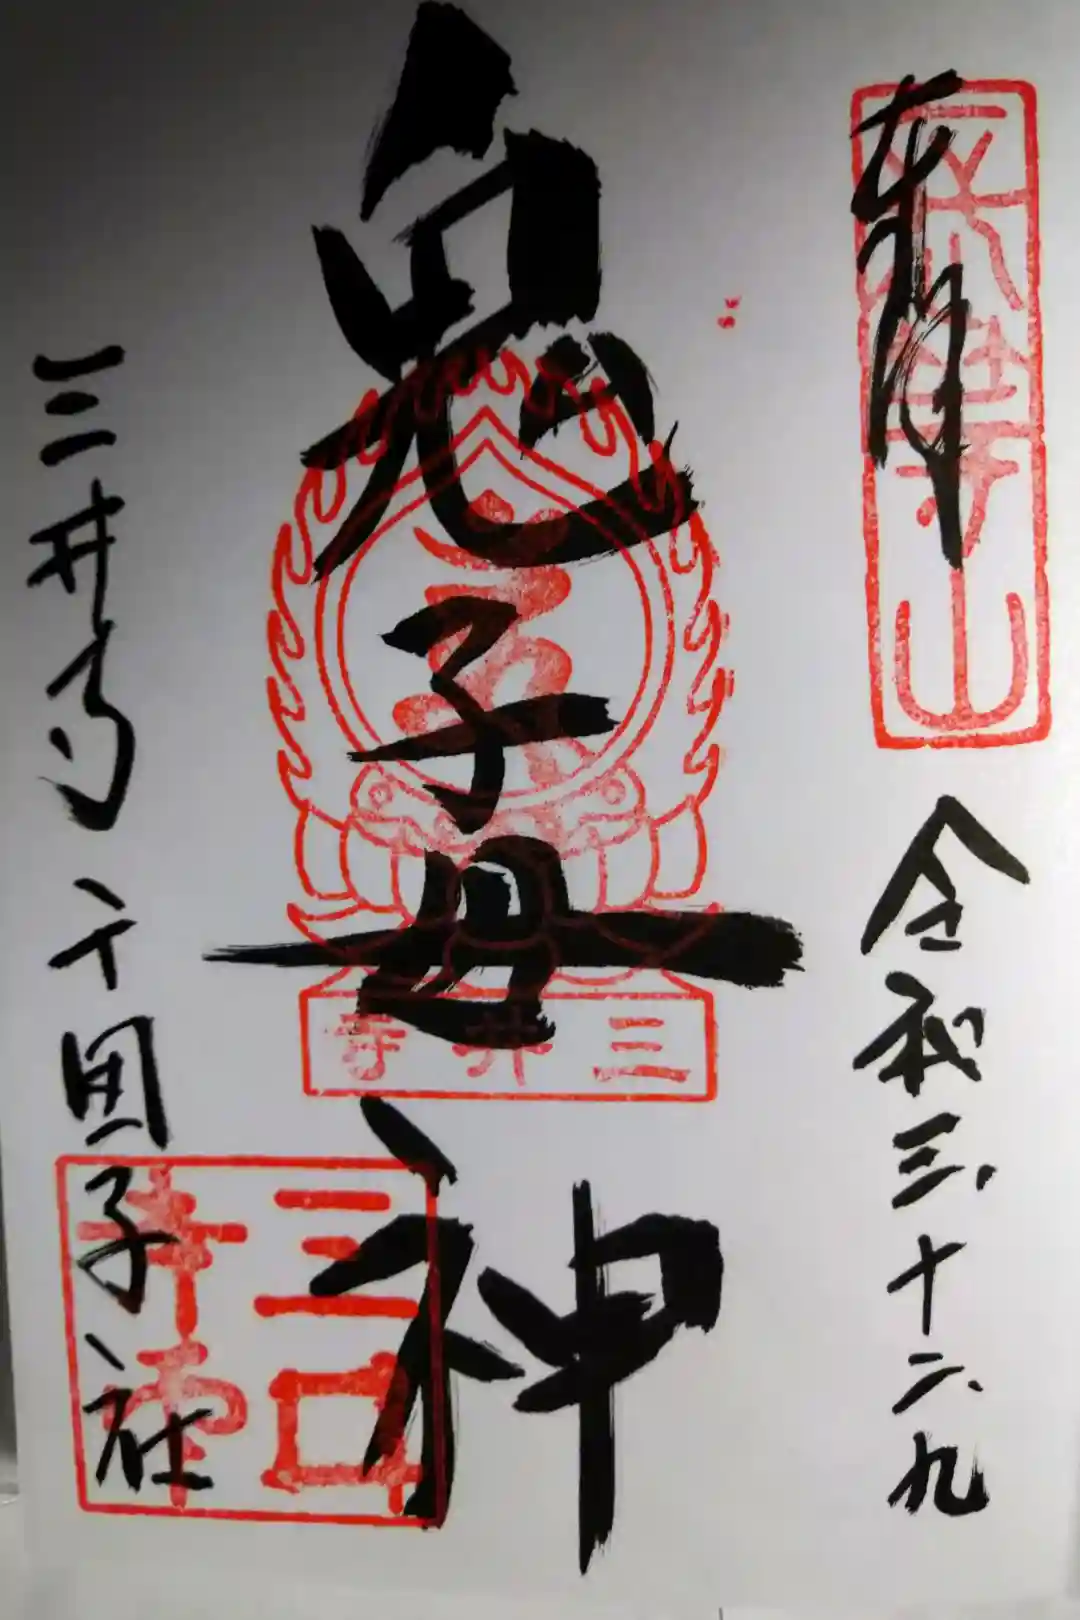 奉拝
長等山
令和三、十二、九
鬼子母神
三井寺
三井寺 千團子社